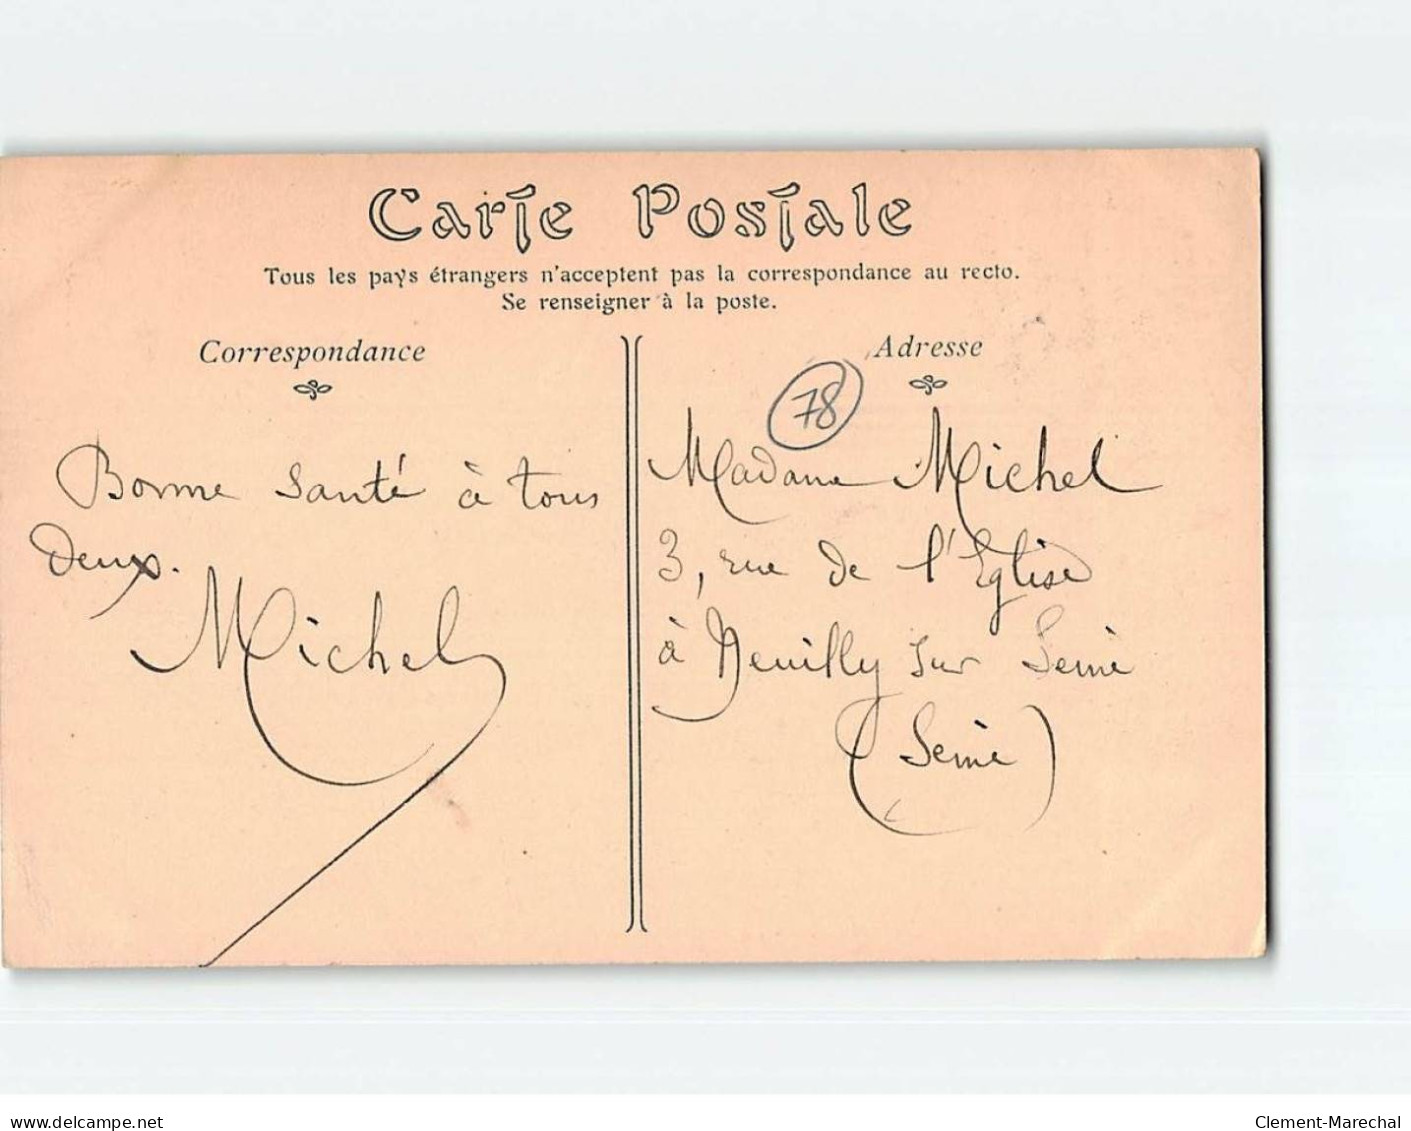 Carte Postale
Tous les pays étrangers n'acceptent pas la correspondance au recto.
Se renseigner à la poste.
Correspondance
Bonne santé à tous
deux.
Michel
Adresse
78
Madame Michel
3, rue de l'Eglise
à Neuilly sur Seine
(Seine)
www.delcampe.net
Clement-Marechal